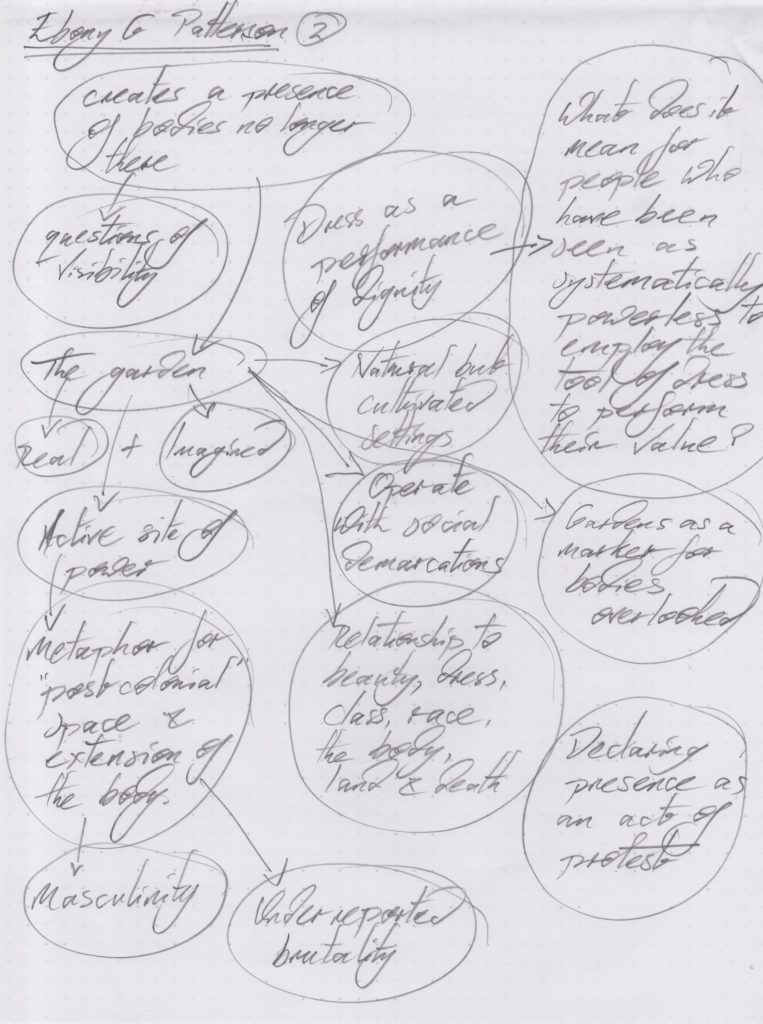 Ebony G Patterson 2
creates a presence
of bodies no longer
there
questions of
visibility
Dress as a
performance
of dignity
What does it
mean for
people who
have been
seen as
systematically
powerless to
employ the
tool of dress
to perform
their value?
The garden
Real + Imagined
Natural but
cultivated
settings
Operate
with social
demarcations
Gardens as a
marker for
bodies
overlooked
Active site of
power
Metaphor for
"postcolonial"
space &
extension of
the body.
Relationship to
beauty, dress,
class, race,
the body,
land & death
Declaring
presence as
an act of
protest
Masculinity
Underreported
brutality